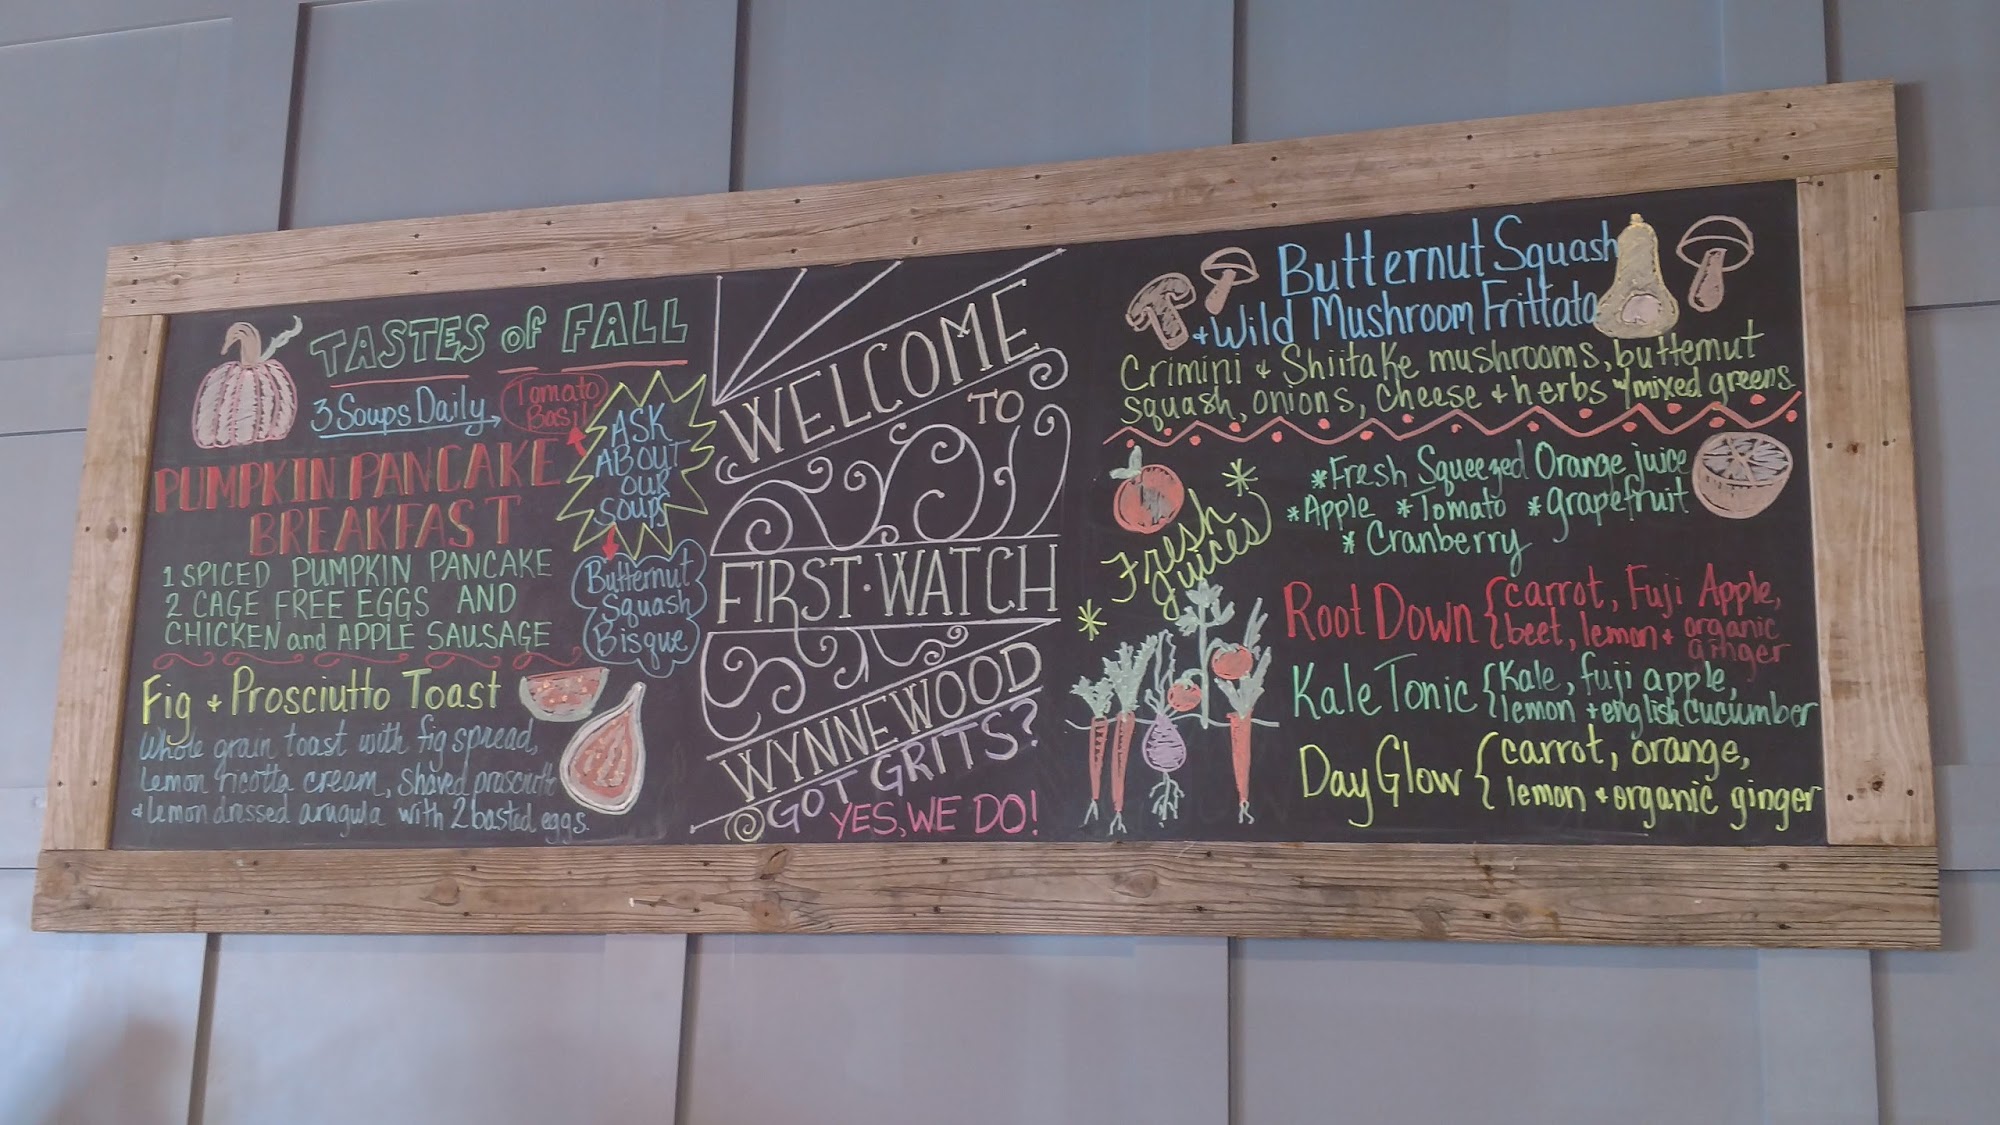 TASTES of FALL
3 Soups Daily
Tomato
Basil
ASK
ABOUT
OUR
SOUPS
Butternut
Squash
Bisque
PUMPKIN PANCAKE
BREAKFAST
1 SPICED PUMPKIN PANCAKE
2 CAGE FREE EGGS AND
CHICKEN and APPLE SAUSAGE
Fig + Prosciutto Toast
Whole grain toast with fig spread,
lemon ricotta cream, shaved prosciutto
+ lemon dressed arugula with 2 basted eggs.
WELCOME
TO
FIRST·WATCH
WYNNEWOOD
GOT GRITS?
YES, WE DO!
Butternut Squash
+ Wild Mushroom Frittata
Crimini + Shiitake mushrooms, butternut
squash, onions, cheese + herbs w/ mixed greens
Fresh
Juices
*Fresh Squeezed Orange juice
*Apple *Tomato *grapefruit
*Cranberry
Root Down { carrot, Fuji Apple,
beet, lemon + organic
ginger
Kale Tonic { Kale, fuji apple,
lemon + english cucumber
Day Glow { carrot, orange,
lemon + organic ginger